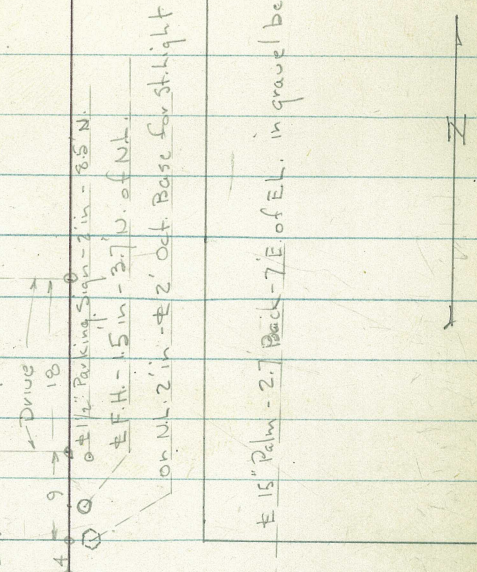 Drive
4 9 18
℄ 1 1/2" Parking Sign - 2' in - 8.5' N.
℄ F.H. - 1.5' in - 3.7' N. of N.L.
on N.L. 2' in - ℄ 2' Oct. Base for St. Light
℄ 15" Palm - 2.7' Back - 7' E. of E.L. in gravel be
N